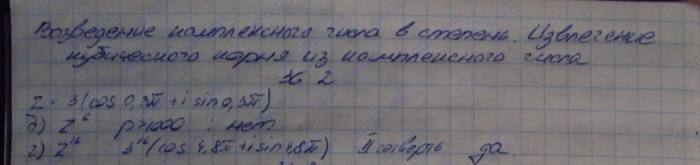 Возведение комплексного числа в степень. Извлечение
кубического корня из комплексного числа
№ 2
Z = 3(cos 0,3π + i sin 0,3π)
в) Z⁶ p>1000 : нет
г) Z¹⁶ 3¹⁶(cos 4,8π + i sin 4,8π) II четверть да